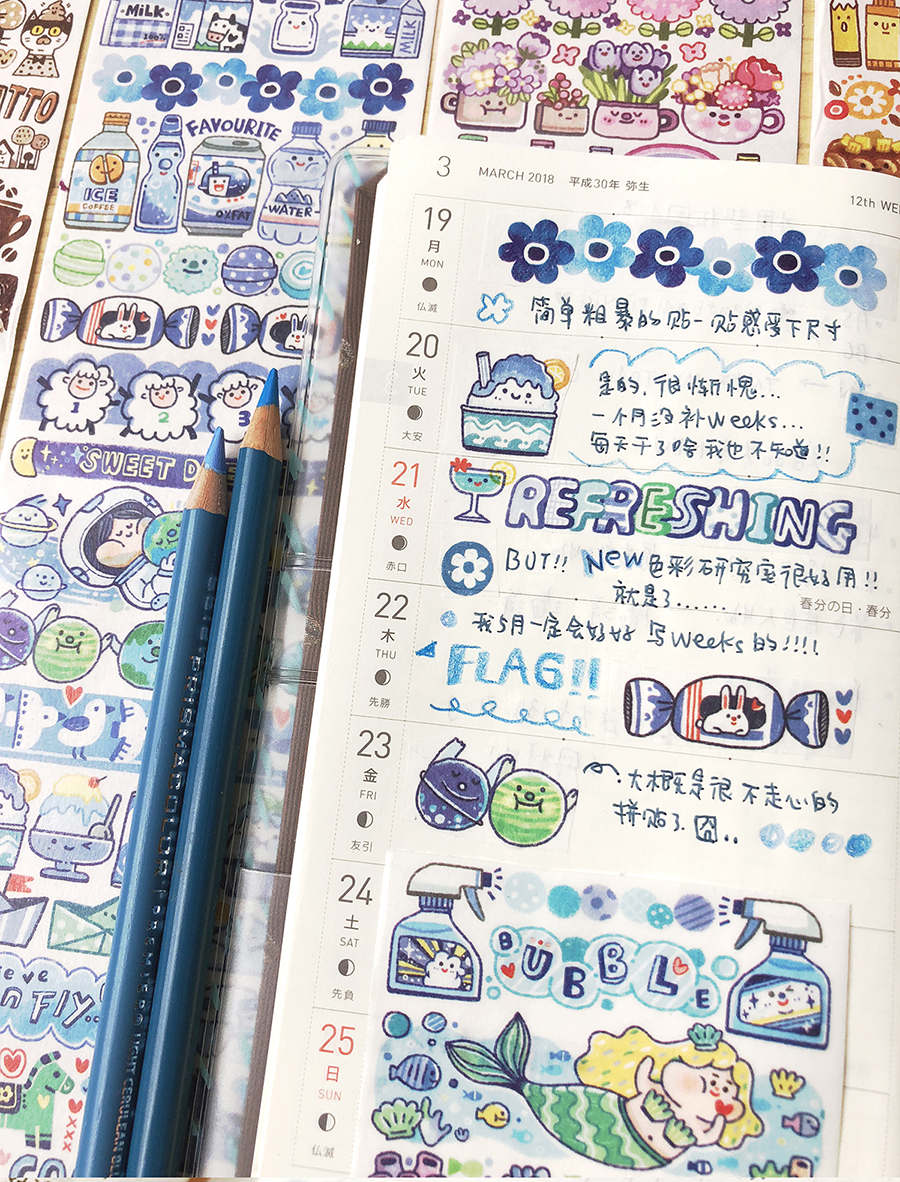 MiLK
100%
MILK
FAVOURITE
ICE
COFFEE
OXFAT
-WATER-
1
2
3
SWEET D
n Fly!
PRISMACOLOR
PREMIER
LIGHT CERULEAN BLUE
3 MARCH 2018 平成30年 弥生
19
月
MON
仏滅
简单粗暴的贴一贴感受下尺寸
20
火
TUE
大安
是的，很惭愧...
一个月没补weeks...
每天干了啥我也不知道!!
21
水
WED
赤口
REFRESHING
BUT!! New色彩研究室很好用!!
就是了......
春分の日・春分
22
木
THU
先勝
我5月一定会好好写weeks的!!!!
FLAG!!
23
金
FRI
友引
大概是很不走心的
拼贴了.囧..
24
土
SAT
先負
BUBBLE
25
日
SUN
仏滅